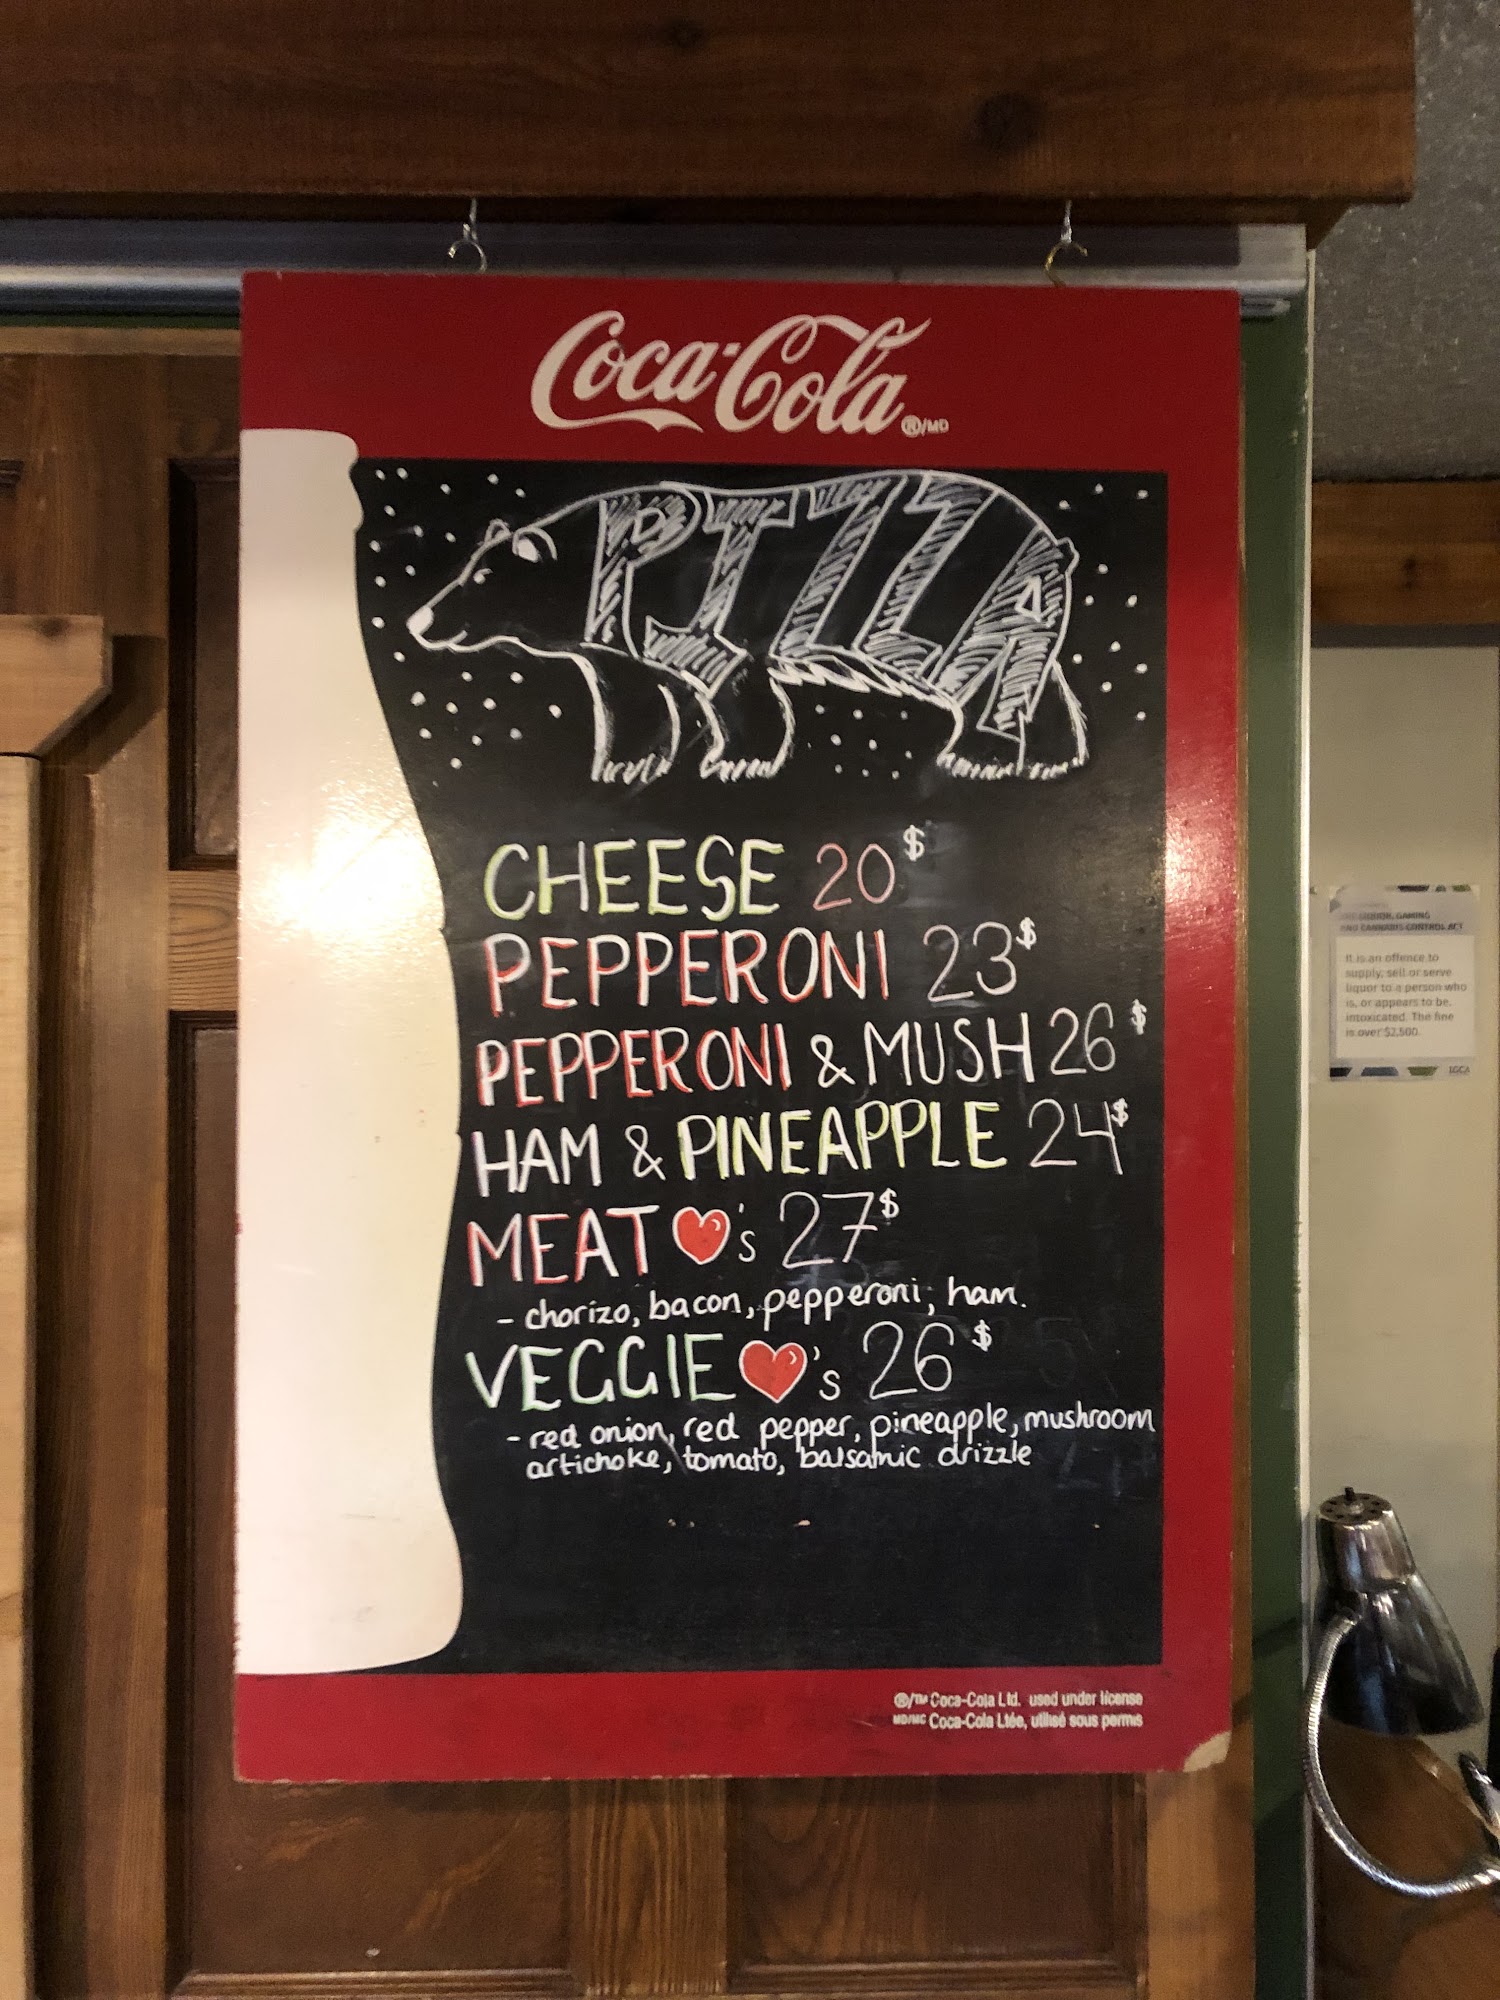 Coca-Cola ®/MD
PIZZA
CHEESE 20$
PEPPERONI 23$
PEPPERONI & MUSH 26$
HAM & PINEAPPLE 24$
MEAT ♥'s 27$
- chorizo, bacon, pepperoni, ham.
VEGGIE ♥'s 26$
- red onion, red pepper, pineapple, mushroom
artichoke, tomato, balsamic drizzle
®/™ Coca-Cola Ltd. used under license
MD/MC Coca-Cola Ltée, utilisé sous permis
LIQUOR, GAMING
AND CANNABIS CONTROL ACT
It is an offence to
supply, sell or serve
liquor to a person who
is, or appears to be,
intoxicated. The fine
is over $2,500.
LGCA